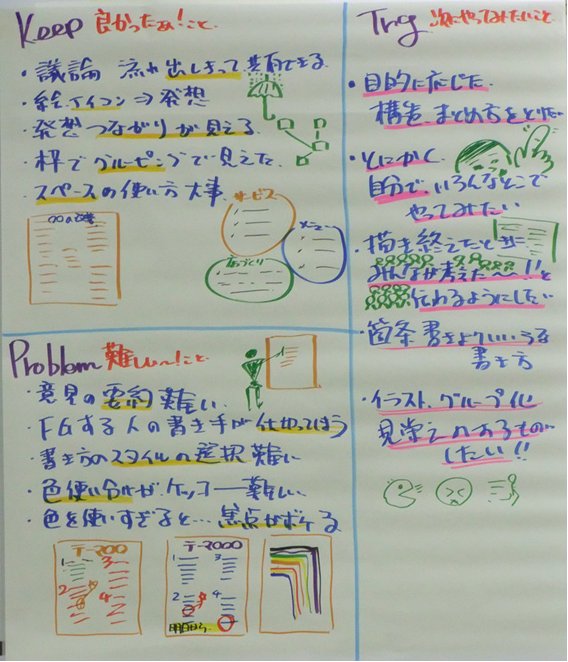 Keep 良かったぁ!こと
・議論 流れ 出しきって 共有できる
・絵、アイコン⇒発想
・発想 つながりが見える
・枠でグルーピングで見えた
・スペースの使い方 大事
サービス
メニュー
店づくり
Problem 難しい~!こと
・意見の要約 難しい
・FGする人の書き手が仕切ってしまう
・書き方のスタイルの選択 難しい
・色使い分けが、ケッコー難しい
・色を使いすぎると…焦点がボケる
テーマ〇〇
1
3
2
4
テーマ〇〇〇
1
3
2
4
明日から
Try 次にやってみたいこと
・目的に応じた
構造、まとめ方をとりたい
・とにかく
自分で、いろんなとこで
やってみたい
・描き終えたとき
みんなが考えた~!!と
伝わるようにしたい
・箇条書きより
書き方
・イラスト、グループ化
見栄えのあるもの
したい!!